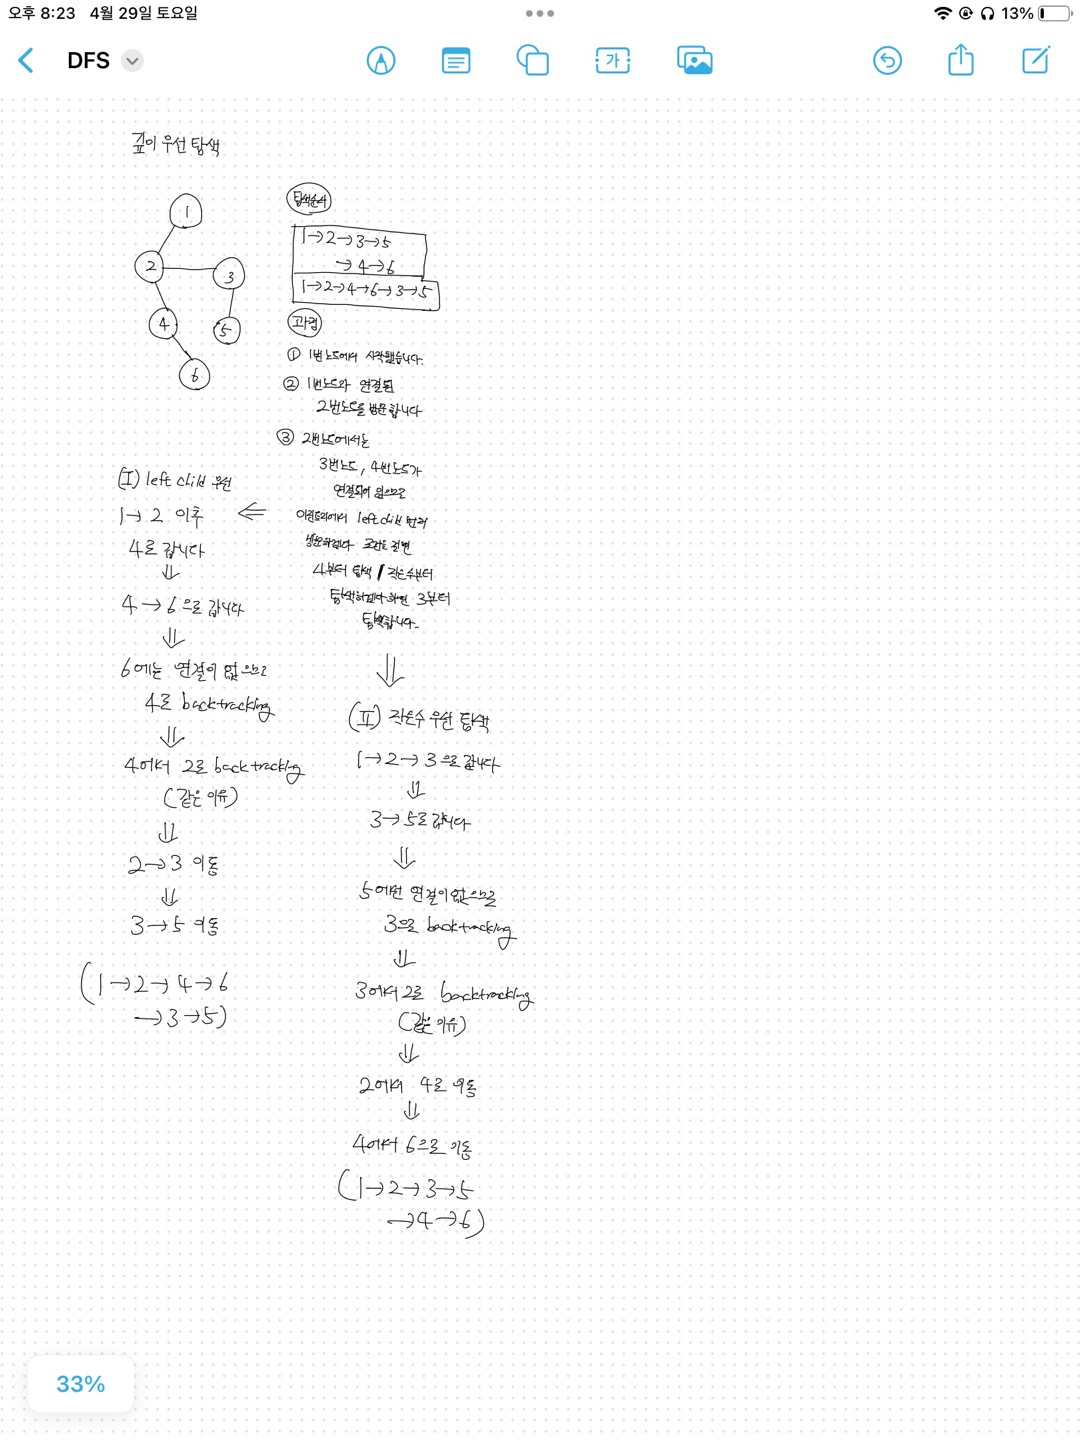 오후 8:23 4월 29일 토요일
13%
DFS
가
깊이 우선 탐색
1
2
3
4
5
6
탐색순서
1→2→3→5
→4→6
1→2→4→6→3→5
과정
① 1번 노드에서 시작했습니다.
② 1번노드와 연결된
2번노드를 방문합니다
③ 2번노드에서는
3번노드, 4번노드가
연결되어 있으므로
이진트리에서 left child 먼저
방문하겠다
4부터 탐색 / 작은수부터
탐색하겠다하면 3부터
탐색합니다.
(I) left child 우선
1→2 이후
4로 갑니다
⇓
4→6으로 갑니다
⇓
6에는 연결이 없으므로
4로 backtracking
⇓
4에서 2로 backtracking
(같은 이유)
⇓
2→3 이동
⇓
3→5 이동
(1→2→4→6
→3→5)
⇐
⇓
(II) 작은수 우선 탐색
1→2→3으로 갑니다
⇓
3→5로 갑니다
⇓
5에선 연결이 없으므로
3으로 backtracking
⇓
3에서 2로 backtracking
(같은 이유)
⇓
2에서 4로 이동
⇓
4에서 6으로 이동
(1→2→3→5
→4→6)
33%